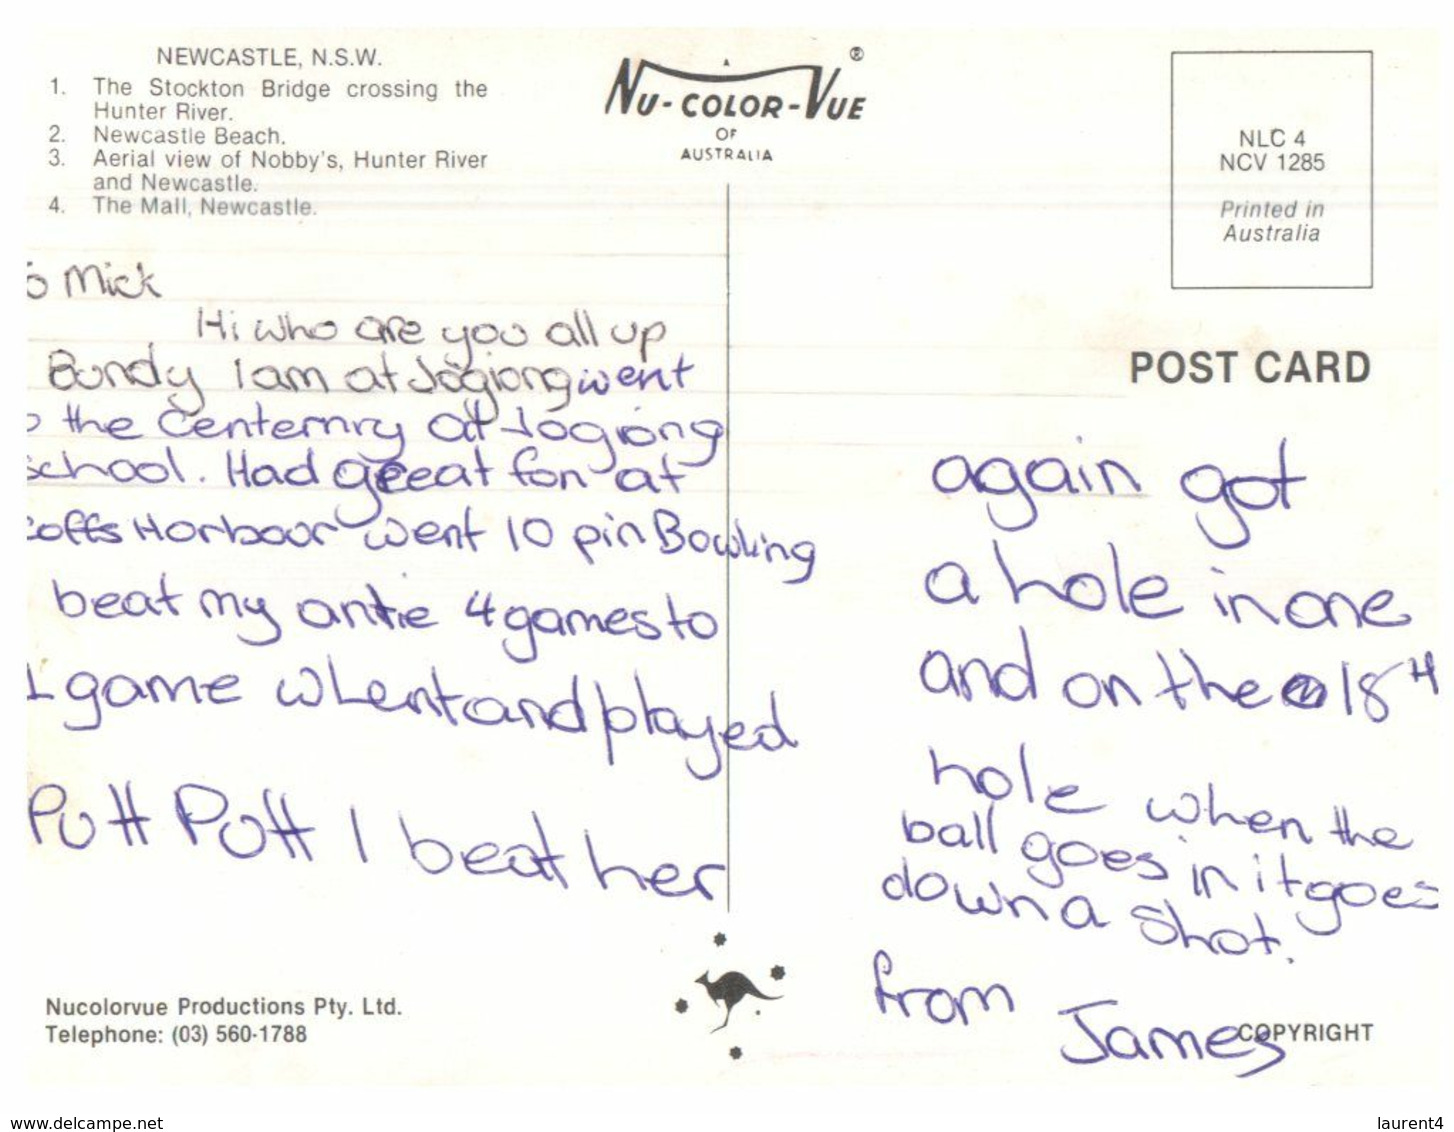 NEWCASTLE, N.S.W.
1. The Stockton Bridge crossing the
Hunter River.
2. Newcastle Beach.
3. Aerial view of Nobby's, Hunter River
and Newcastle.
4. The Mall, Newcastle.
NU-COLOR-VUE ®
OF
AUSTRALIA
NLC 4
NCV 1285
Printed in
Australia
POST CARD
o Mick
Hi who are you all up
Bundy I am at Jogiong went
o the Centernry at Jogiong
school. Had geeat fon at
coffs Horbour went 10 pin Bowling
beat my antie 4 games to
1 game whent and played
Putt Putt I beat her
again got
a hole in one
and on the 18 H
hole when the
ball goes in it goes
down a shot.
from
James
Nucolorvue Productions Pty. Ltd.
Telephone: (03) 560-1788
COPYRIGHT
www.delcampe.net
laurent4